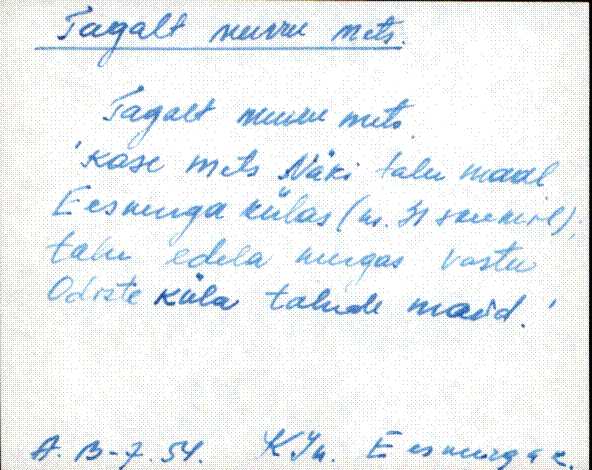 Tagalt nurru mets.
Tagalt nurru mets.
'Kase mets Näki talu maal
Eesnurga külas (nr. 31 skeemil),
talu edela nurgas vastu
Odiste küla talude maid.'
A. B-7. 54. KJn. Eesnurga k.